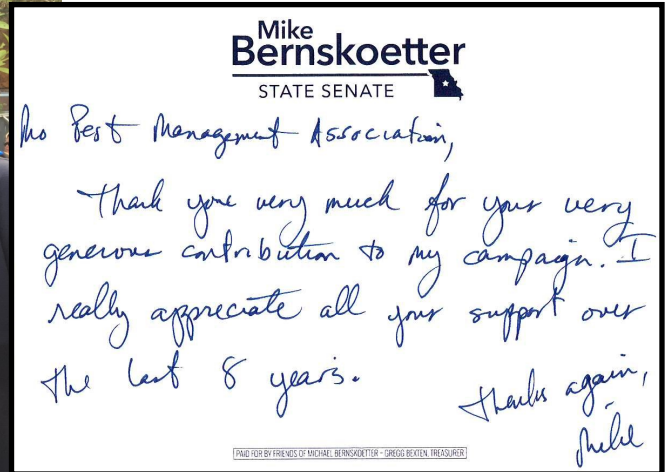 Mike
Bernskoetter
STATE SENATE
Mo Pest Management Association,
Thank you very much for your very
generous contribution to my campaign. I
really appreciate all your support over
the last 8 years.
Thanks again,
Mike
PAID FOR BY FRIENDS OF MICHAEL BERNSKOETTER - GREGG BEXTEN, TREASURER